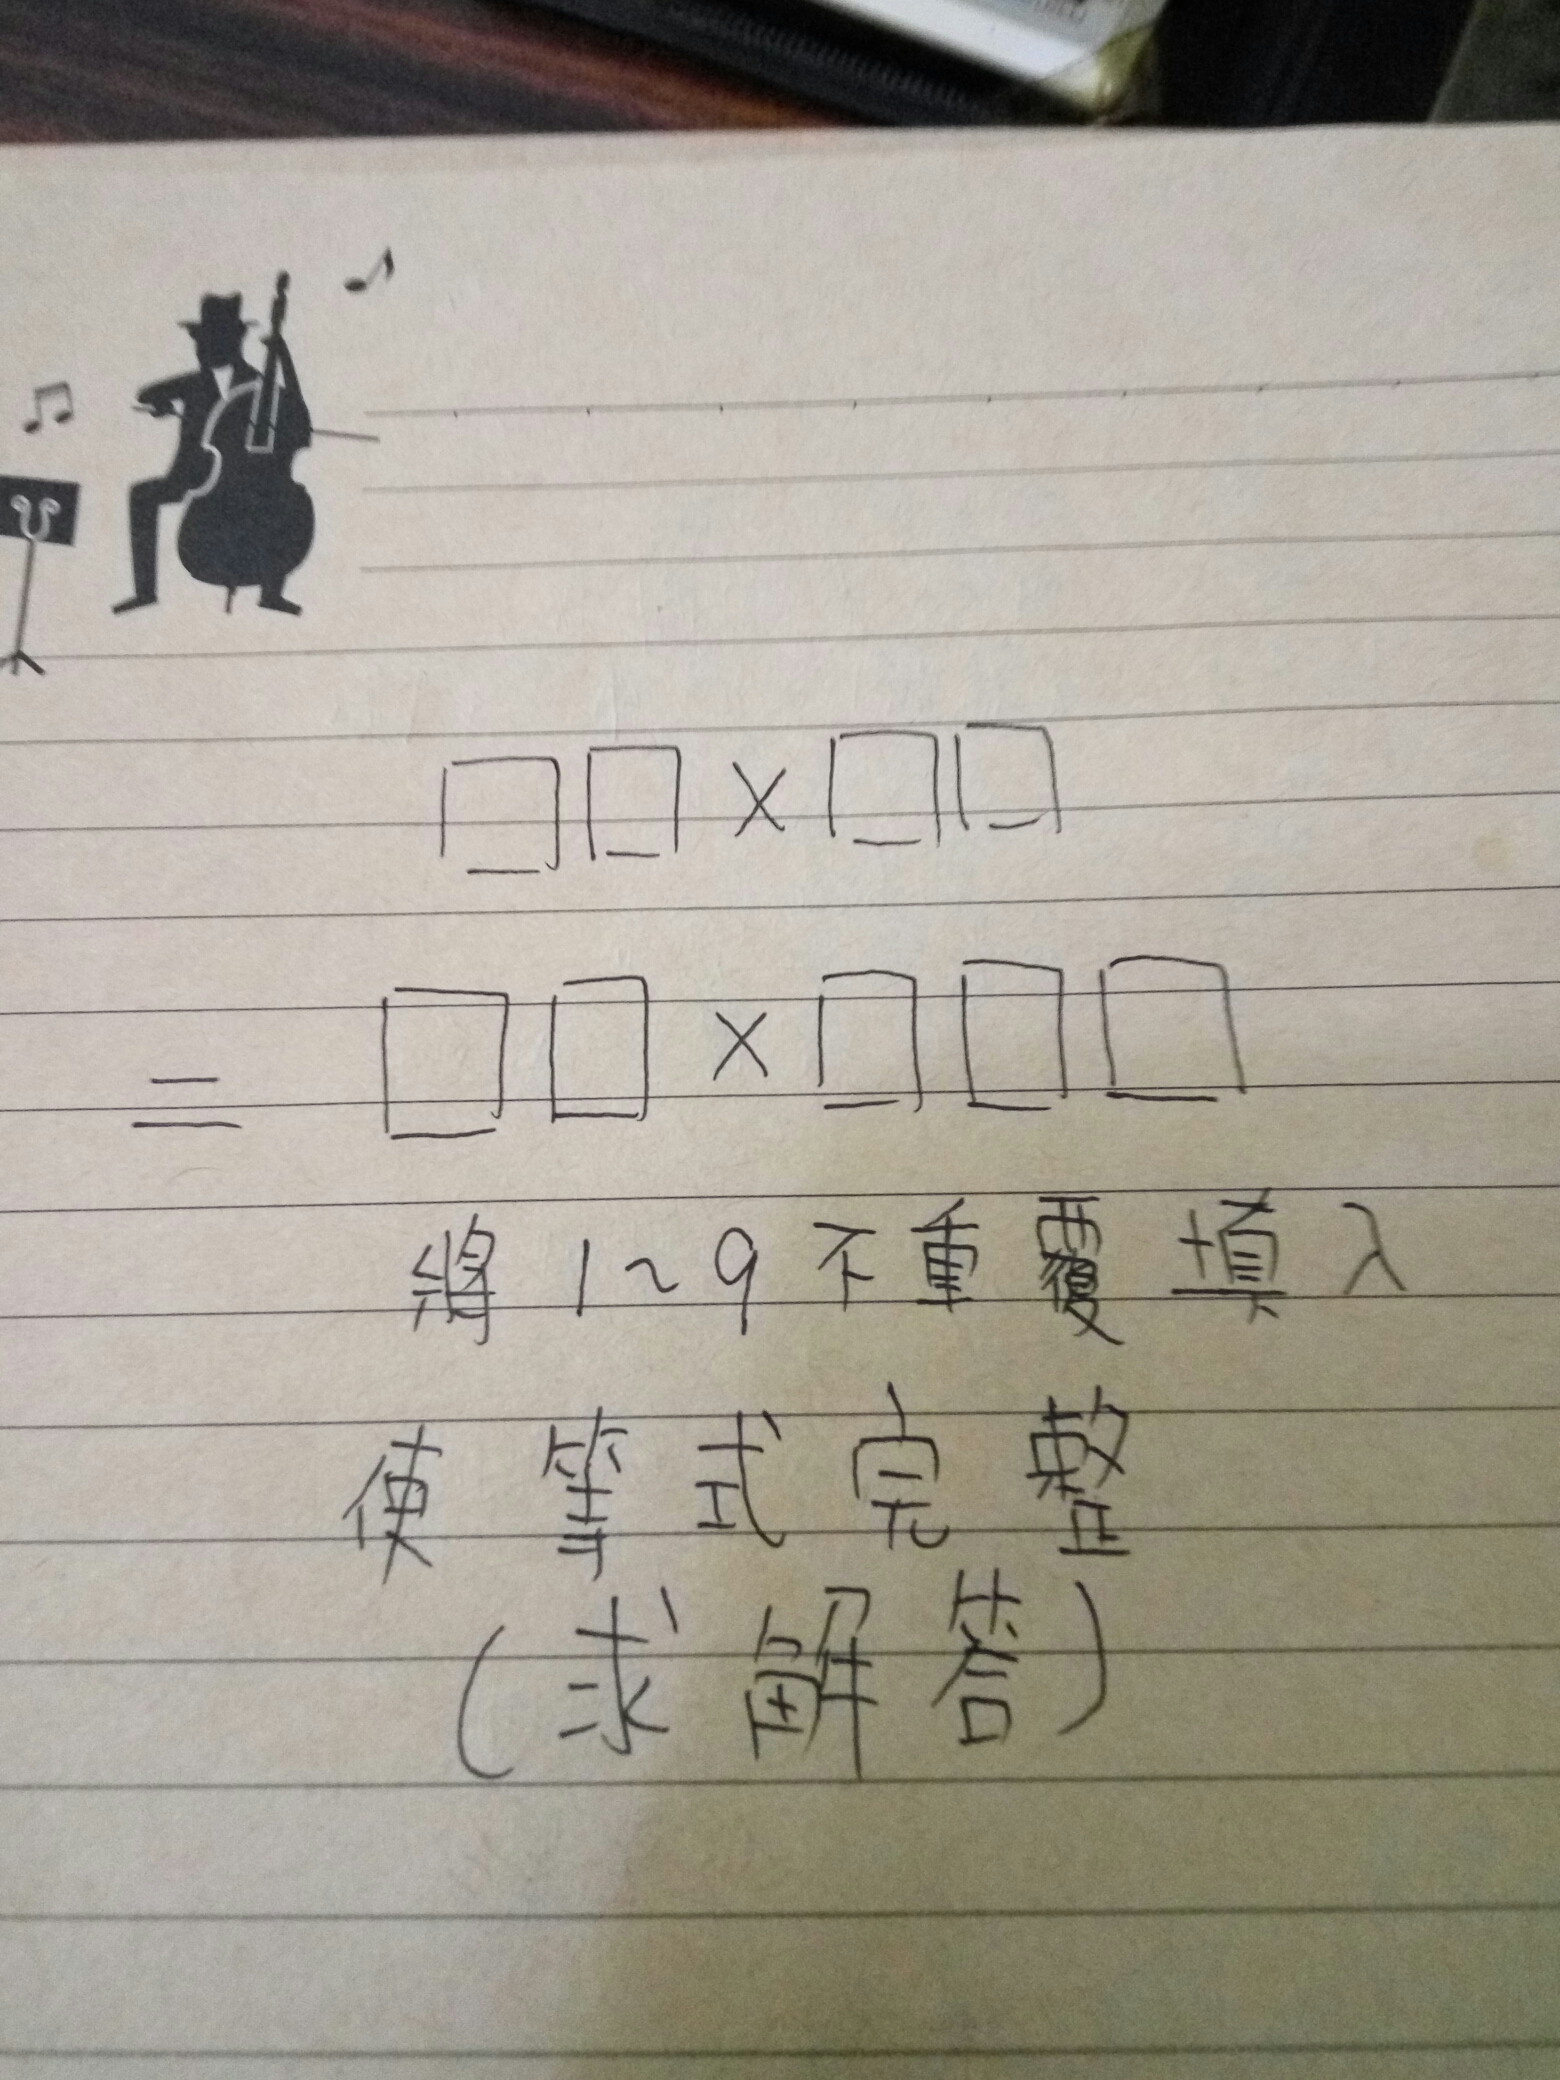 □□×□□
=□□×□□□
將1~9不重覆填入
使等式完整
(求解答)